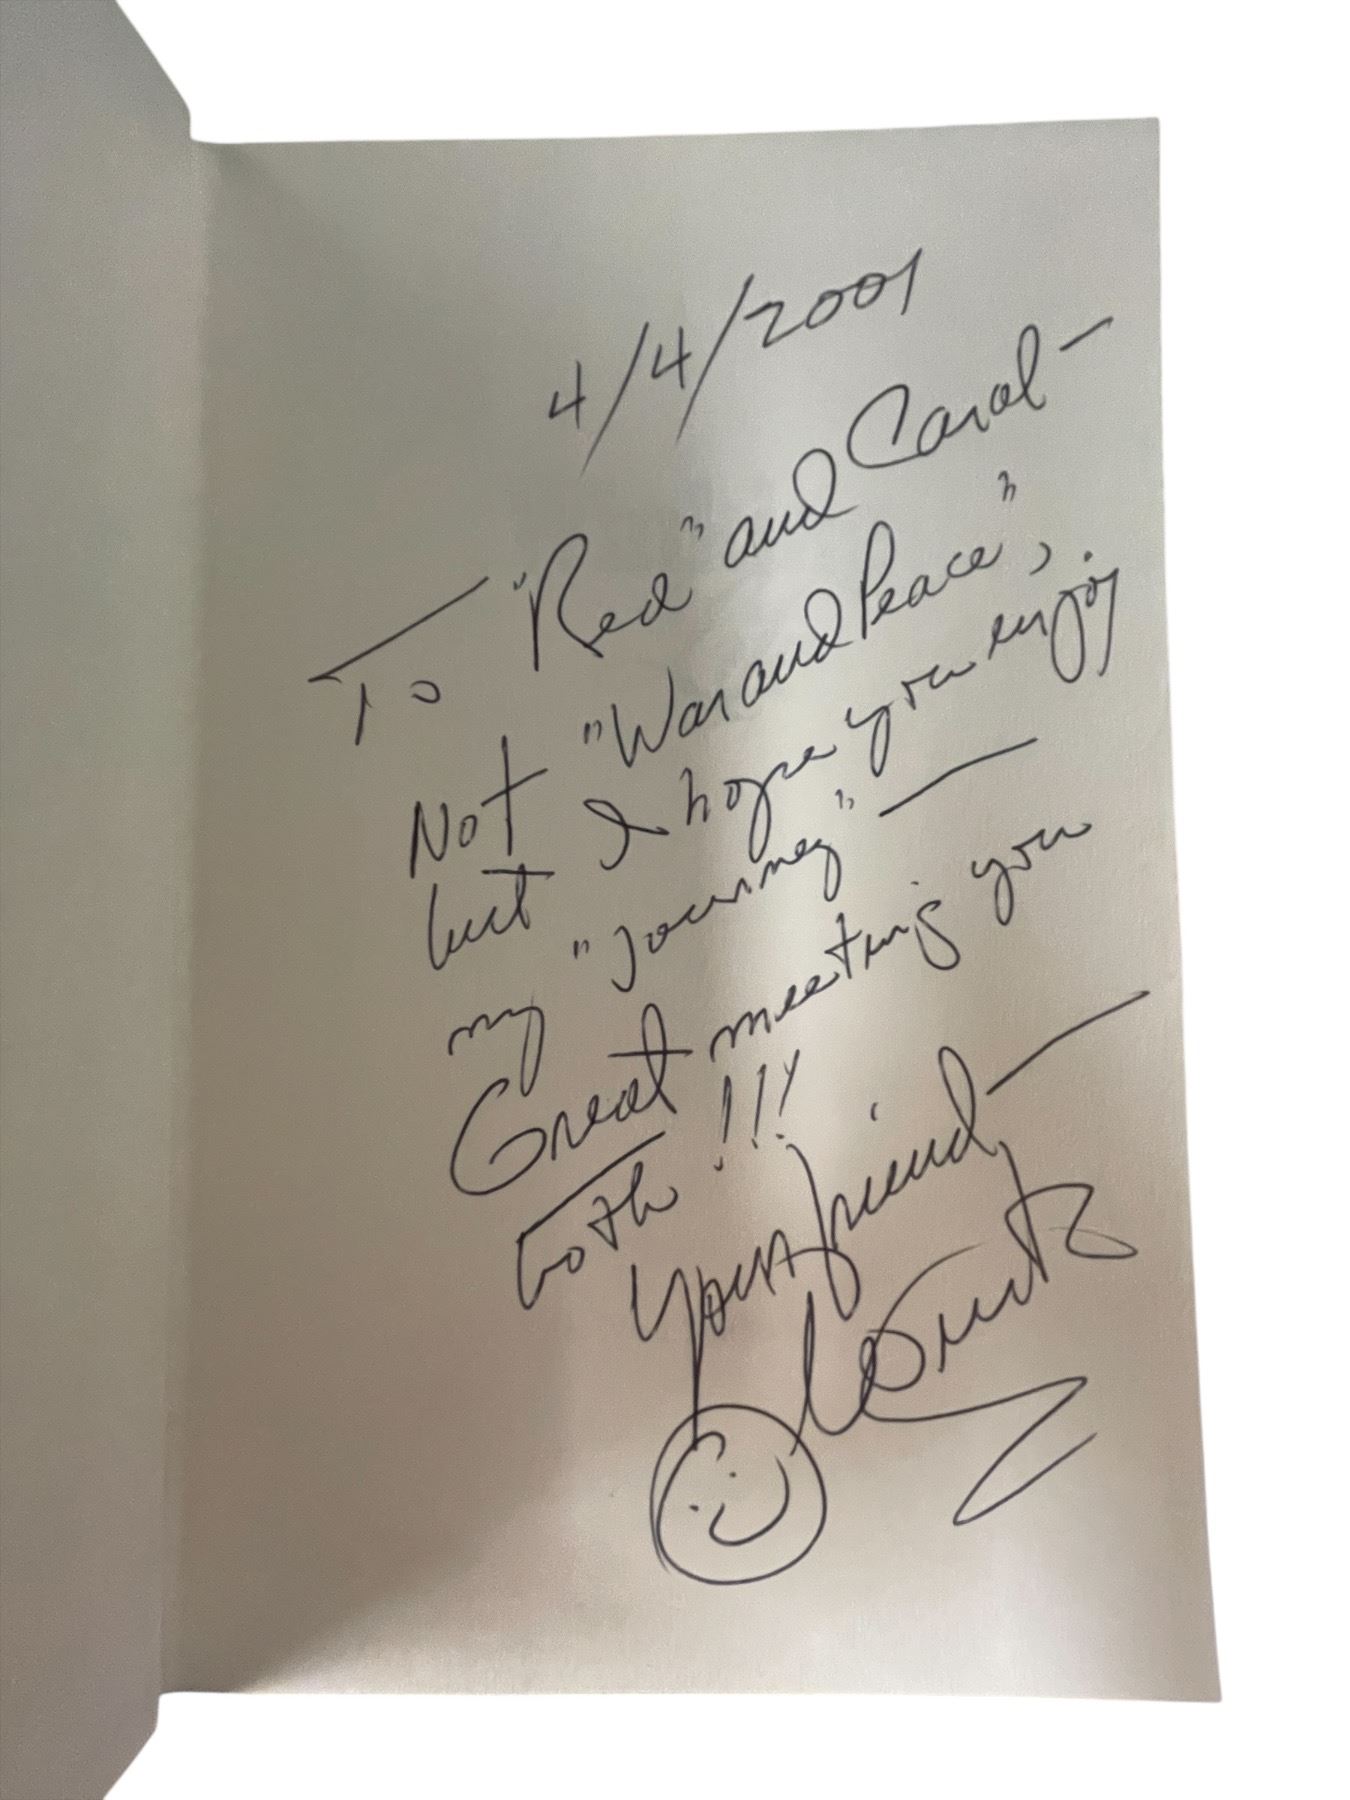 4/4/2001
To "Red" and Carol—
Not "War and Peace",
but I hope you enjoy
my "journey"—
Great meeting you
both!!!
Your friend—